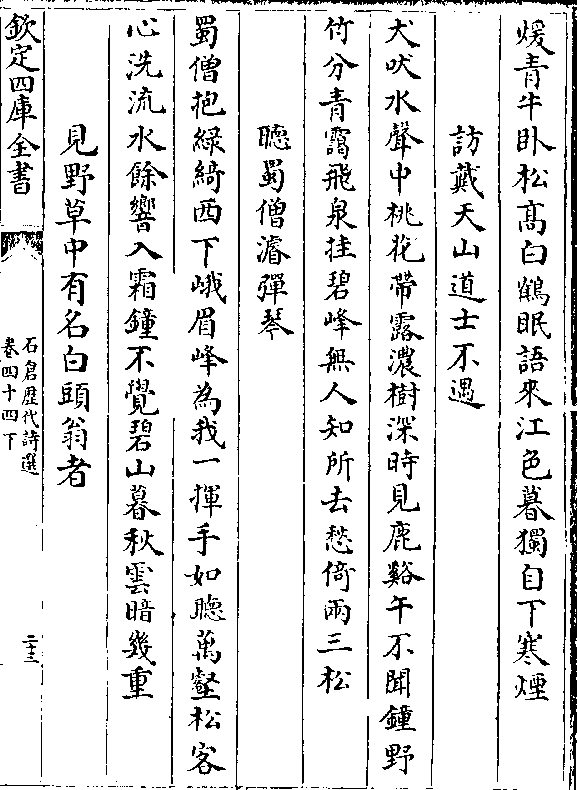 煖青牛卧松髙白鶴眠語來江色暮獨自下寒煙
訪戴天山道士不遇
犬吠水聲中桃花帶露濃樹深時見鹿谿午不聞鐘野
竹分青靄飛泉挂碧峰無人知所去愁倚兩三松
聽蜀僧濬彈琴
蜀僧抱綠綺西下峨眉峰為我一揮手如聽萬壑松客
心洗流水餘響入霜鐘不覺碧山暮秋雲暗幾重
見野草中有名白頭翁者
欽定四庫全書
石倉歴代詩選
卷四十四下
二十三